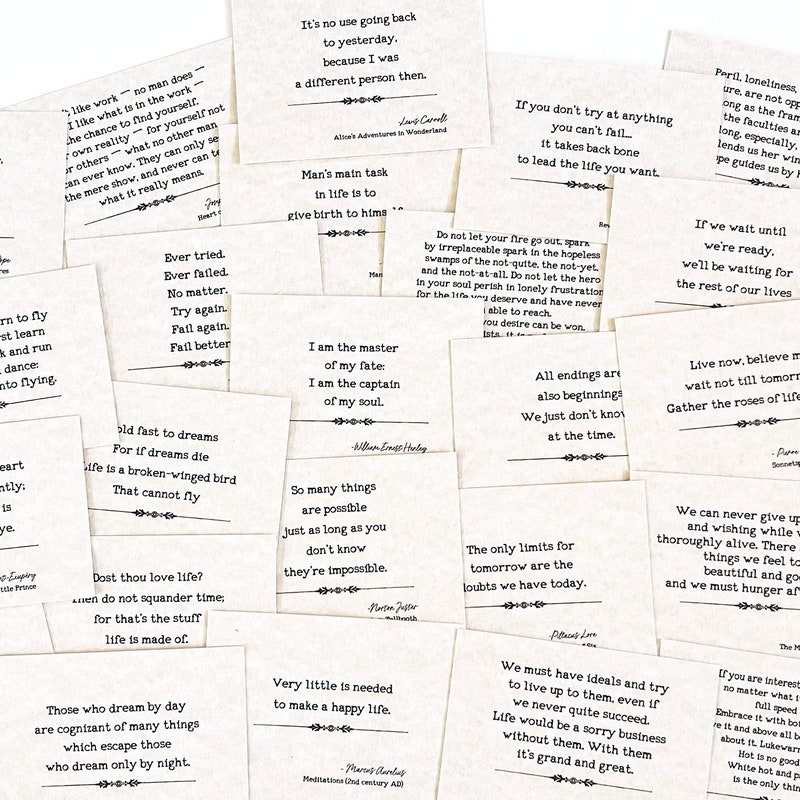 It's no use going back
to yesterday,
because I was
a different person then.
-Lewis Carroll
Alice's Adventures in Wonderland
like work — no man does —
I like what is in the work —
the chance to find yourself.
own reality — for yourself not
others — what no other man
can ever know. They can only se
the mere show, and never can te
what it really means.
Heart o
Man's main task
in life is to
give birth to himself
Man
If you don't try at anything
you can't fail...
it takes back bone
to lead the life you want.
Re
Peril, loneliness,
ure, are not opp
long as the fram
the faculties an
long, especially,
lends us her win
ope guides us by h
If we wait until
we're ready,
we'll be waiting for
the rest of our lives
Ever tried.
Ever failed.
No matter.
Try again.
Fail again.
Fail better
Do not let your fire go out, spark
by irreplaceable spark in the hopeless
swamps of the not-quite, the not-yet,
and the not-at-all. Do not let the hero
in your soul perish in lonely frustration
for the life you deserve and have never
able to reach.
you desire can be won.
rn to fly
rst learn
k and run
dance:
nto flying.
I am the master
of my fate:
I am the captain
of my soul.
-William Ernest Henley
All endings are
also beginnings
We just don't know
at the time.
Live now, believe m
wait not till tomorr
Gather the roses of life
- Pierre
Sonnets
old fast to dreams
For if dreams die
Life is a broken-winged bird
That cannot fly
eart
ntly;
is
ye.
t-Exupéry
ttle Prince
So many things
are possible
just as long as you
don't know
they're impossible.
-Norton Juster
Tollbooth
The only limits for
tomorrow are the
doubts we have today.
-Pittacus Lore
Six
We can never give up
and wishing while w
thoroughly alive. There
things we feel to
beautiful and goo
and we must hunger af
The M
Dost thou love life?
Then do not squander time;
for that's the stuff
life is made of.
Those who dream by day
are cognizant of many things
which escape those
who dream only by night.
Very little is needed
to make a happy life.
- Marcus Aurelius
Meditations (2nd century AD)
We must have ideals and try
to live up to them, even if
we never quite succeed.
Life would be a sorry business
without them. With them
it's grand and great.
If you are interes
no matter what i
full speed
Embrace it with bo
ve it and above all b
about it. Lukewarm
Hot is no good
White hot and p
is the only thin